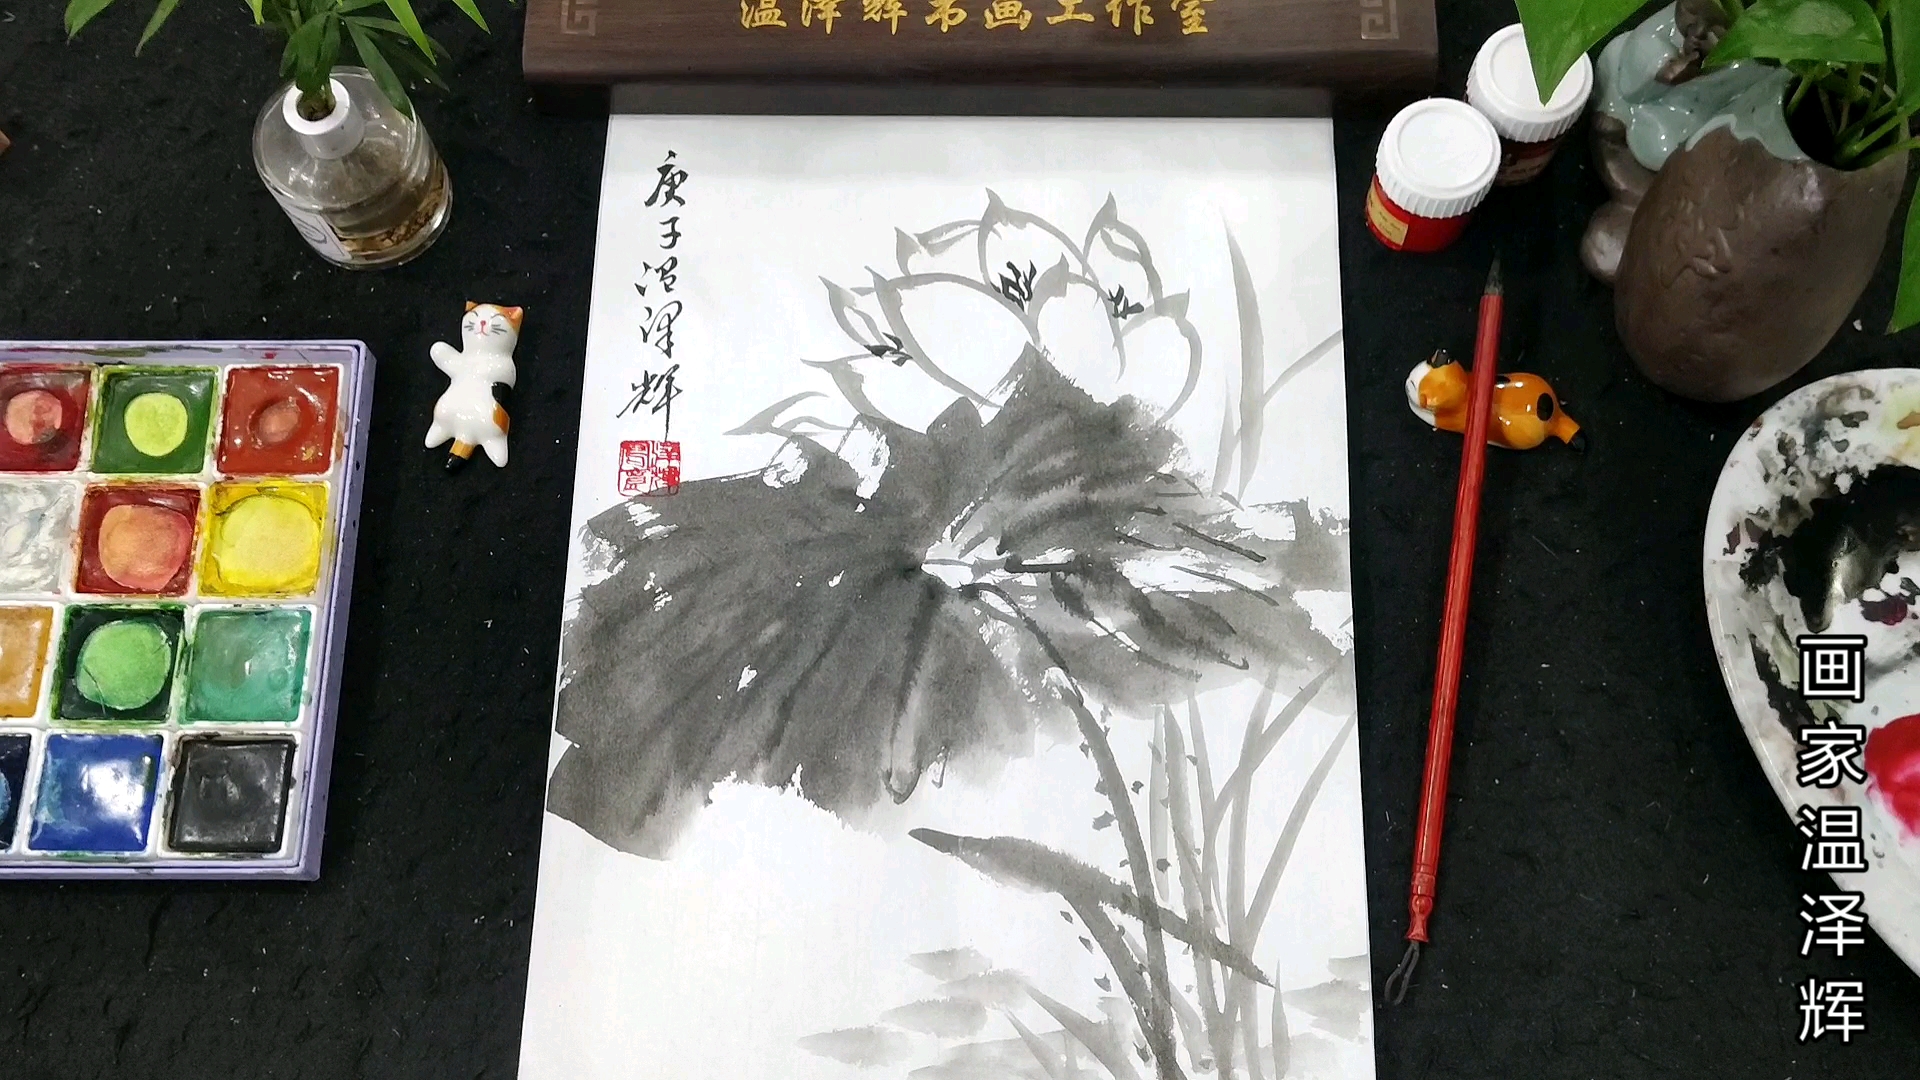 温泽辉书画工作室
庚子温泽辉
画家温泽辉